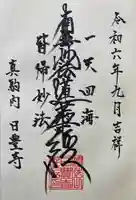 令和六年九月吉祥
一天四海
南無妙法蓮華経
皆帰妙法
真駒内 日登寺